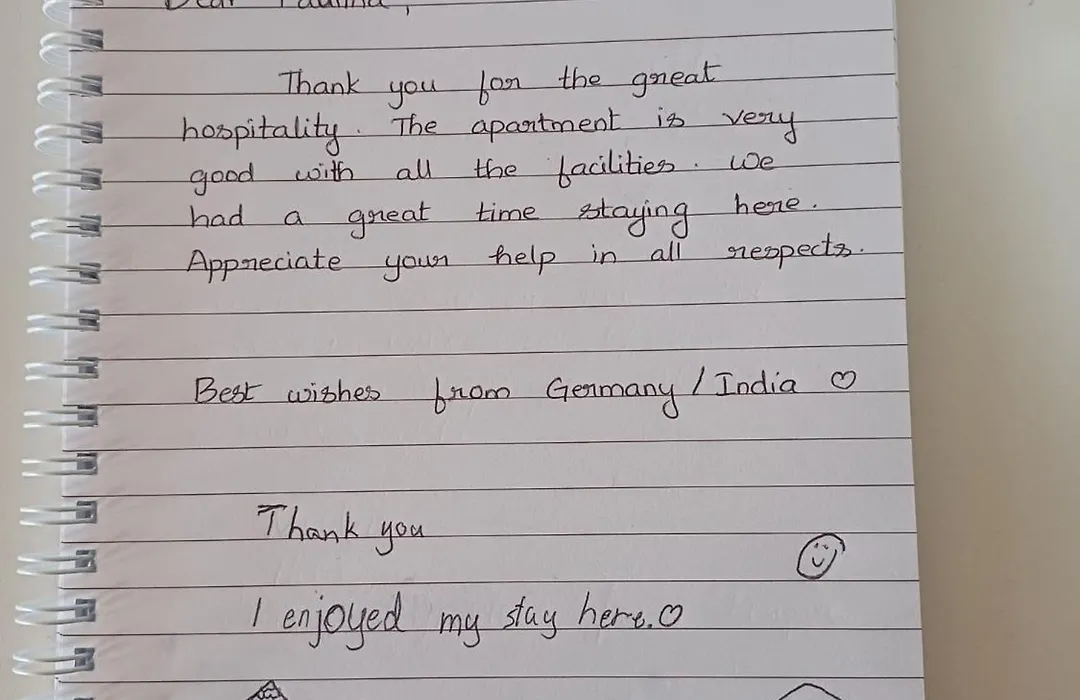 Dear
Thank you for the great
hospitality. The apartment is very
good with all the facilities. We
had a great time staying here.
Appreciate your help in all respects.
Best wishes from Germany / India ♡
Thank you
I enjoyed my stay here. ♡